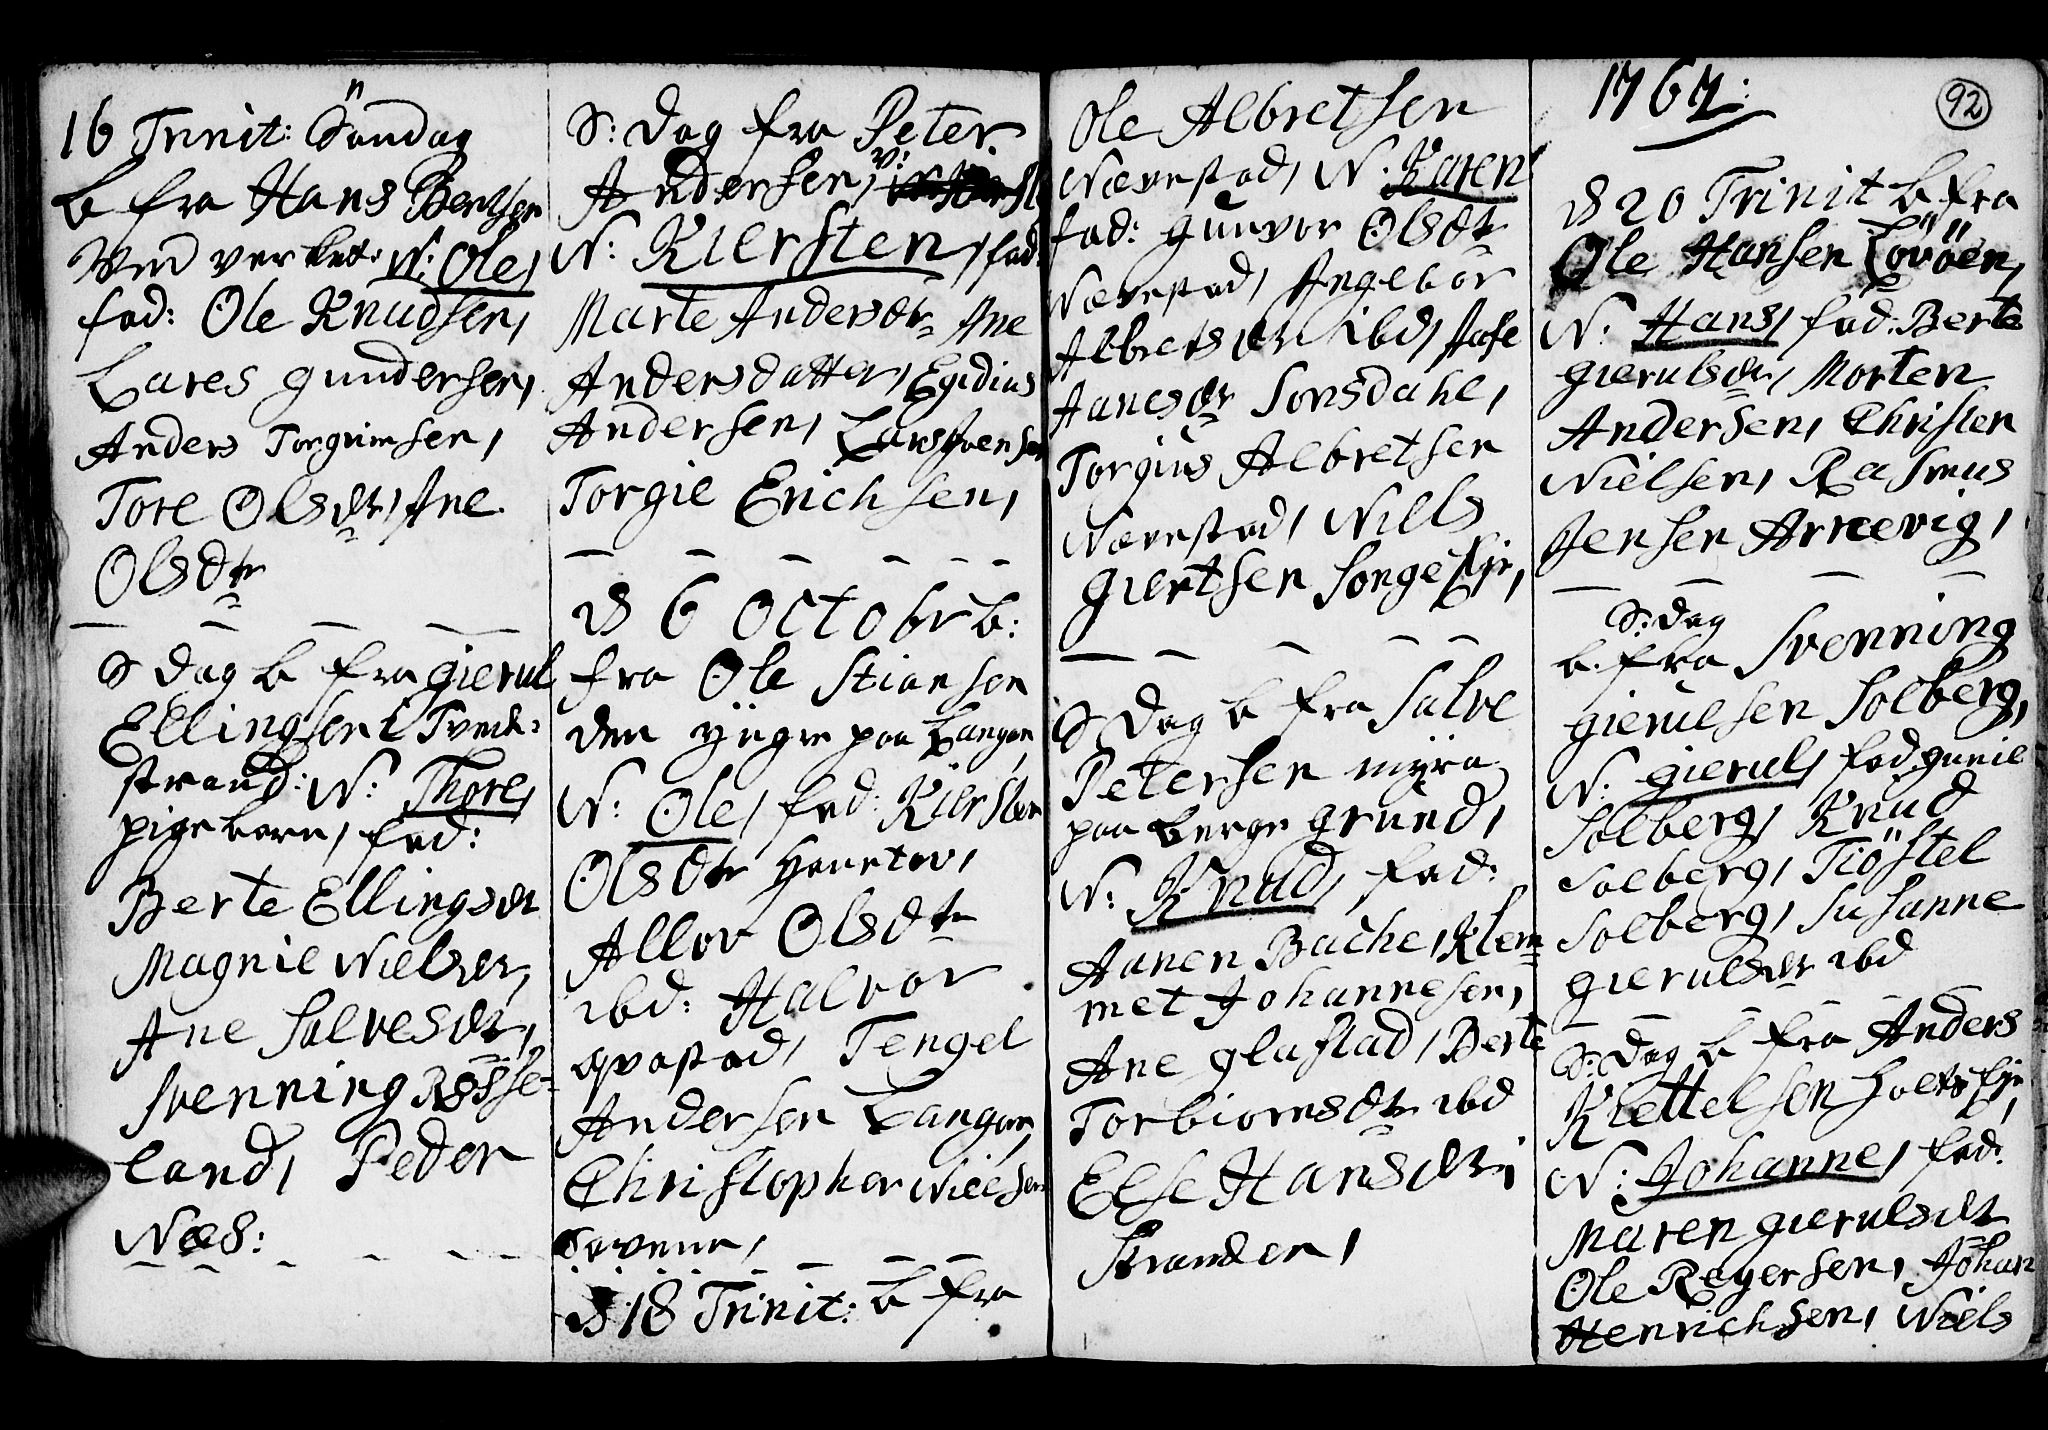 16 Trinit: Søndag
b fra Hans Bentsen
Ved verket. N: Ole,
fad: Ole Knudsen,
Lares gundersen,
Anders Torgrimsen,
Tore Olsdtr, Ane
Olsdtr
S dag b fra gierul
Ellingsen i Tvede-
strand: N: Thore,
pigebarn, fad:
Berte Ellingsdtr
Magnil Nielsdtr,
Ane Salvesdtr,
Svenning Røsse-
land, Peder
Næs:
S: dag fra Peter
Andersen, v:
N: Kiersten, fad:
Marte Andersdtr Ane
Andersdatter, Egidius
Andersen, Lars Svensen
Torgie Erichsen,
d 6 Octobr b:
fra Ole Stiansen
den yngre paa Langøen,
N: Ole, fad: Kiersten
Olsdtr
Allov Olsdtr
ibd: Halvor
qvastad, Tengel
Andersen Langøen,
Christopher Nielsen
d 18 Trinit: b fra
Ole Albretsen
Nævestad, N: Karen
fad: gunvor Olsdtr
Nævestad, Ingebor
Albretsdtr ibd, Aase
Aanesdtr Sonsdahl,
Torgius Albretsen
Nævestad, Niels
giertsen Songe Eje,
S dag b fra Salve
Petersen myra
paa berge grund,
N: Knud, fad:
Aanen Bache, Klem-
met Johannesen,
Ane glastad, Berte
Torbiornsdtr ibd
Else Hansdtr i
Stranden,
1767:
92
d 20 Trinit b fra
Ole Hansen Lovöen,
N: Hans, fad: Berte
gierulsdtr, Morten
Andersen, Christen
Nielsen, Rasmus
Jensen Arnevig,
S: dag
b. fra Svenning
gierulsen Solberg,
N: gierul, fad gunil
Solberg, Knud
Solberg, Tiöstel
Solberg, Susanne
gierulsdtr ibd
S: dag b fra Anders
Kiettelsen Holts Eje,
N: Johanne, fad:
Maren gierulsdtr
Ole Regersen, Johan
Henrichsen, Niels